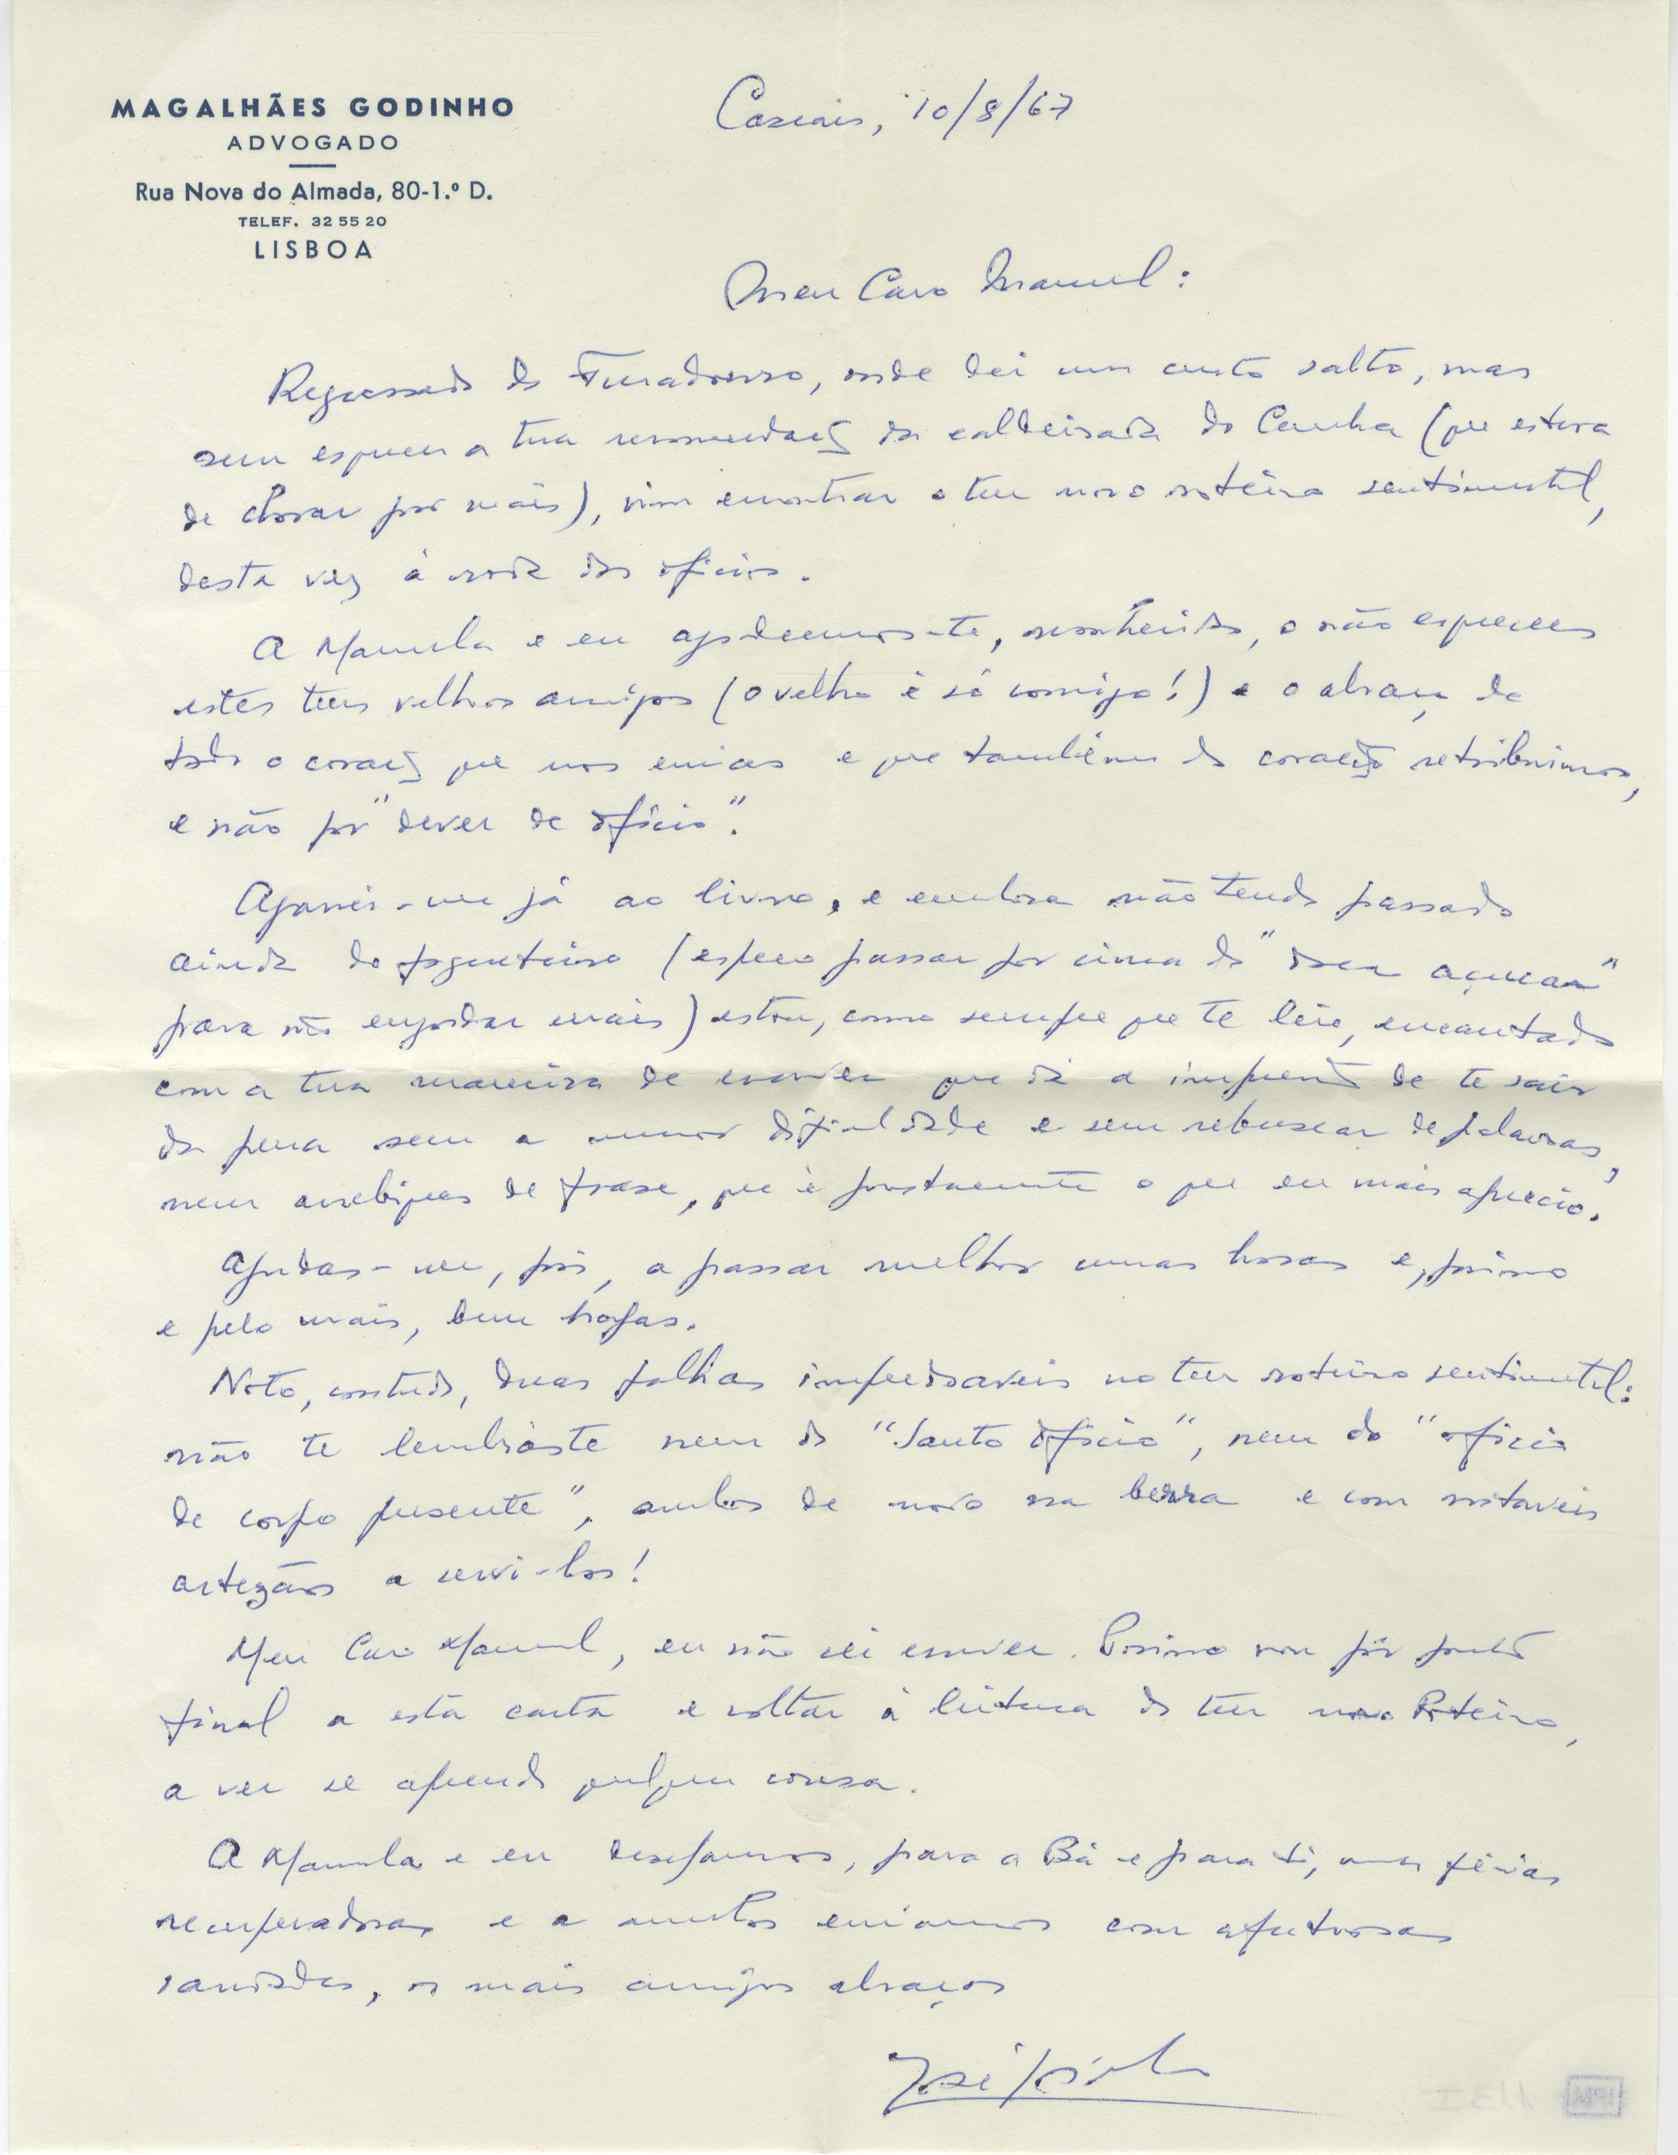 MAGALHÃES GODINHO
ADVOGADO
Rua Nova do Almada, 80-1.º D.
TELEF. 32 55 20
LISBOA
Cascais, 10/8/67
Meu Caro Manuel:
Regressado do Furadouro, onde dei um curto salto, mas
sem esquecer a tua recomendação da caldeirada do Cunha (que estava
de chorar por mais), vim encontrar o teu novo roteiro sentimental,
desta vez à roda dos ofícios.
A Manuela e eu agradecemos-te, reconhecidos, o não esqueceres
estes teus velhos amigos (o velho é só comigo!) e o abraço de
todo o coração que nos envias e que também do coração retribuimos,
e não por "dever de ofício".
Agarrei-me já ao livro, e embora não tendo passado
ainda do (espero passar por cima do açucar"
para não engordar mais) estou, como sempre que te leio, encantado
com a tua maneira de escrever que dá a impressão de te sair
da pena sem a menor dificuldade e sem rebuscar de palavras,
nem arrebiques de frase, que é justamente o que eu mais aprecio.
Ajudas-me, pois, a passar melhor umas horas e, por isso
e pelo mais, bem hajas.
Noto, contudo, duas falhas imperdoaveis no teu roteiro sentimental:
não te lembraste nem do "Santo Ofício", nem do "oficio
de corpo presente", ambos de novo na berra e com notaveis
artezãos a servi-los!
Meu Caro Manuel, eu não sei escrever. Por isso vou pôr ponto
final a esta carta e voltar à leitura do teu novo Roteiro,
a ver se aprendo qualquer cousa.
A Manuela e eu desejamos, para a Bá e para ti, umas férias
recuperadoras e a ambos enviamos com afectuosas
saudades, os mais amigos abraços
José